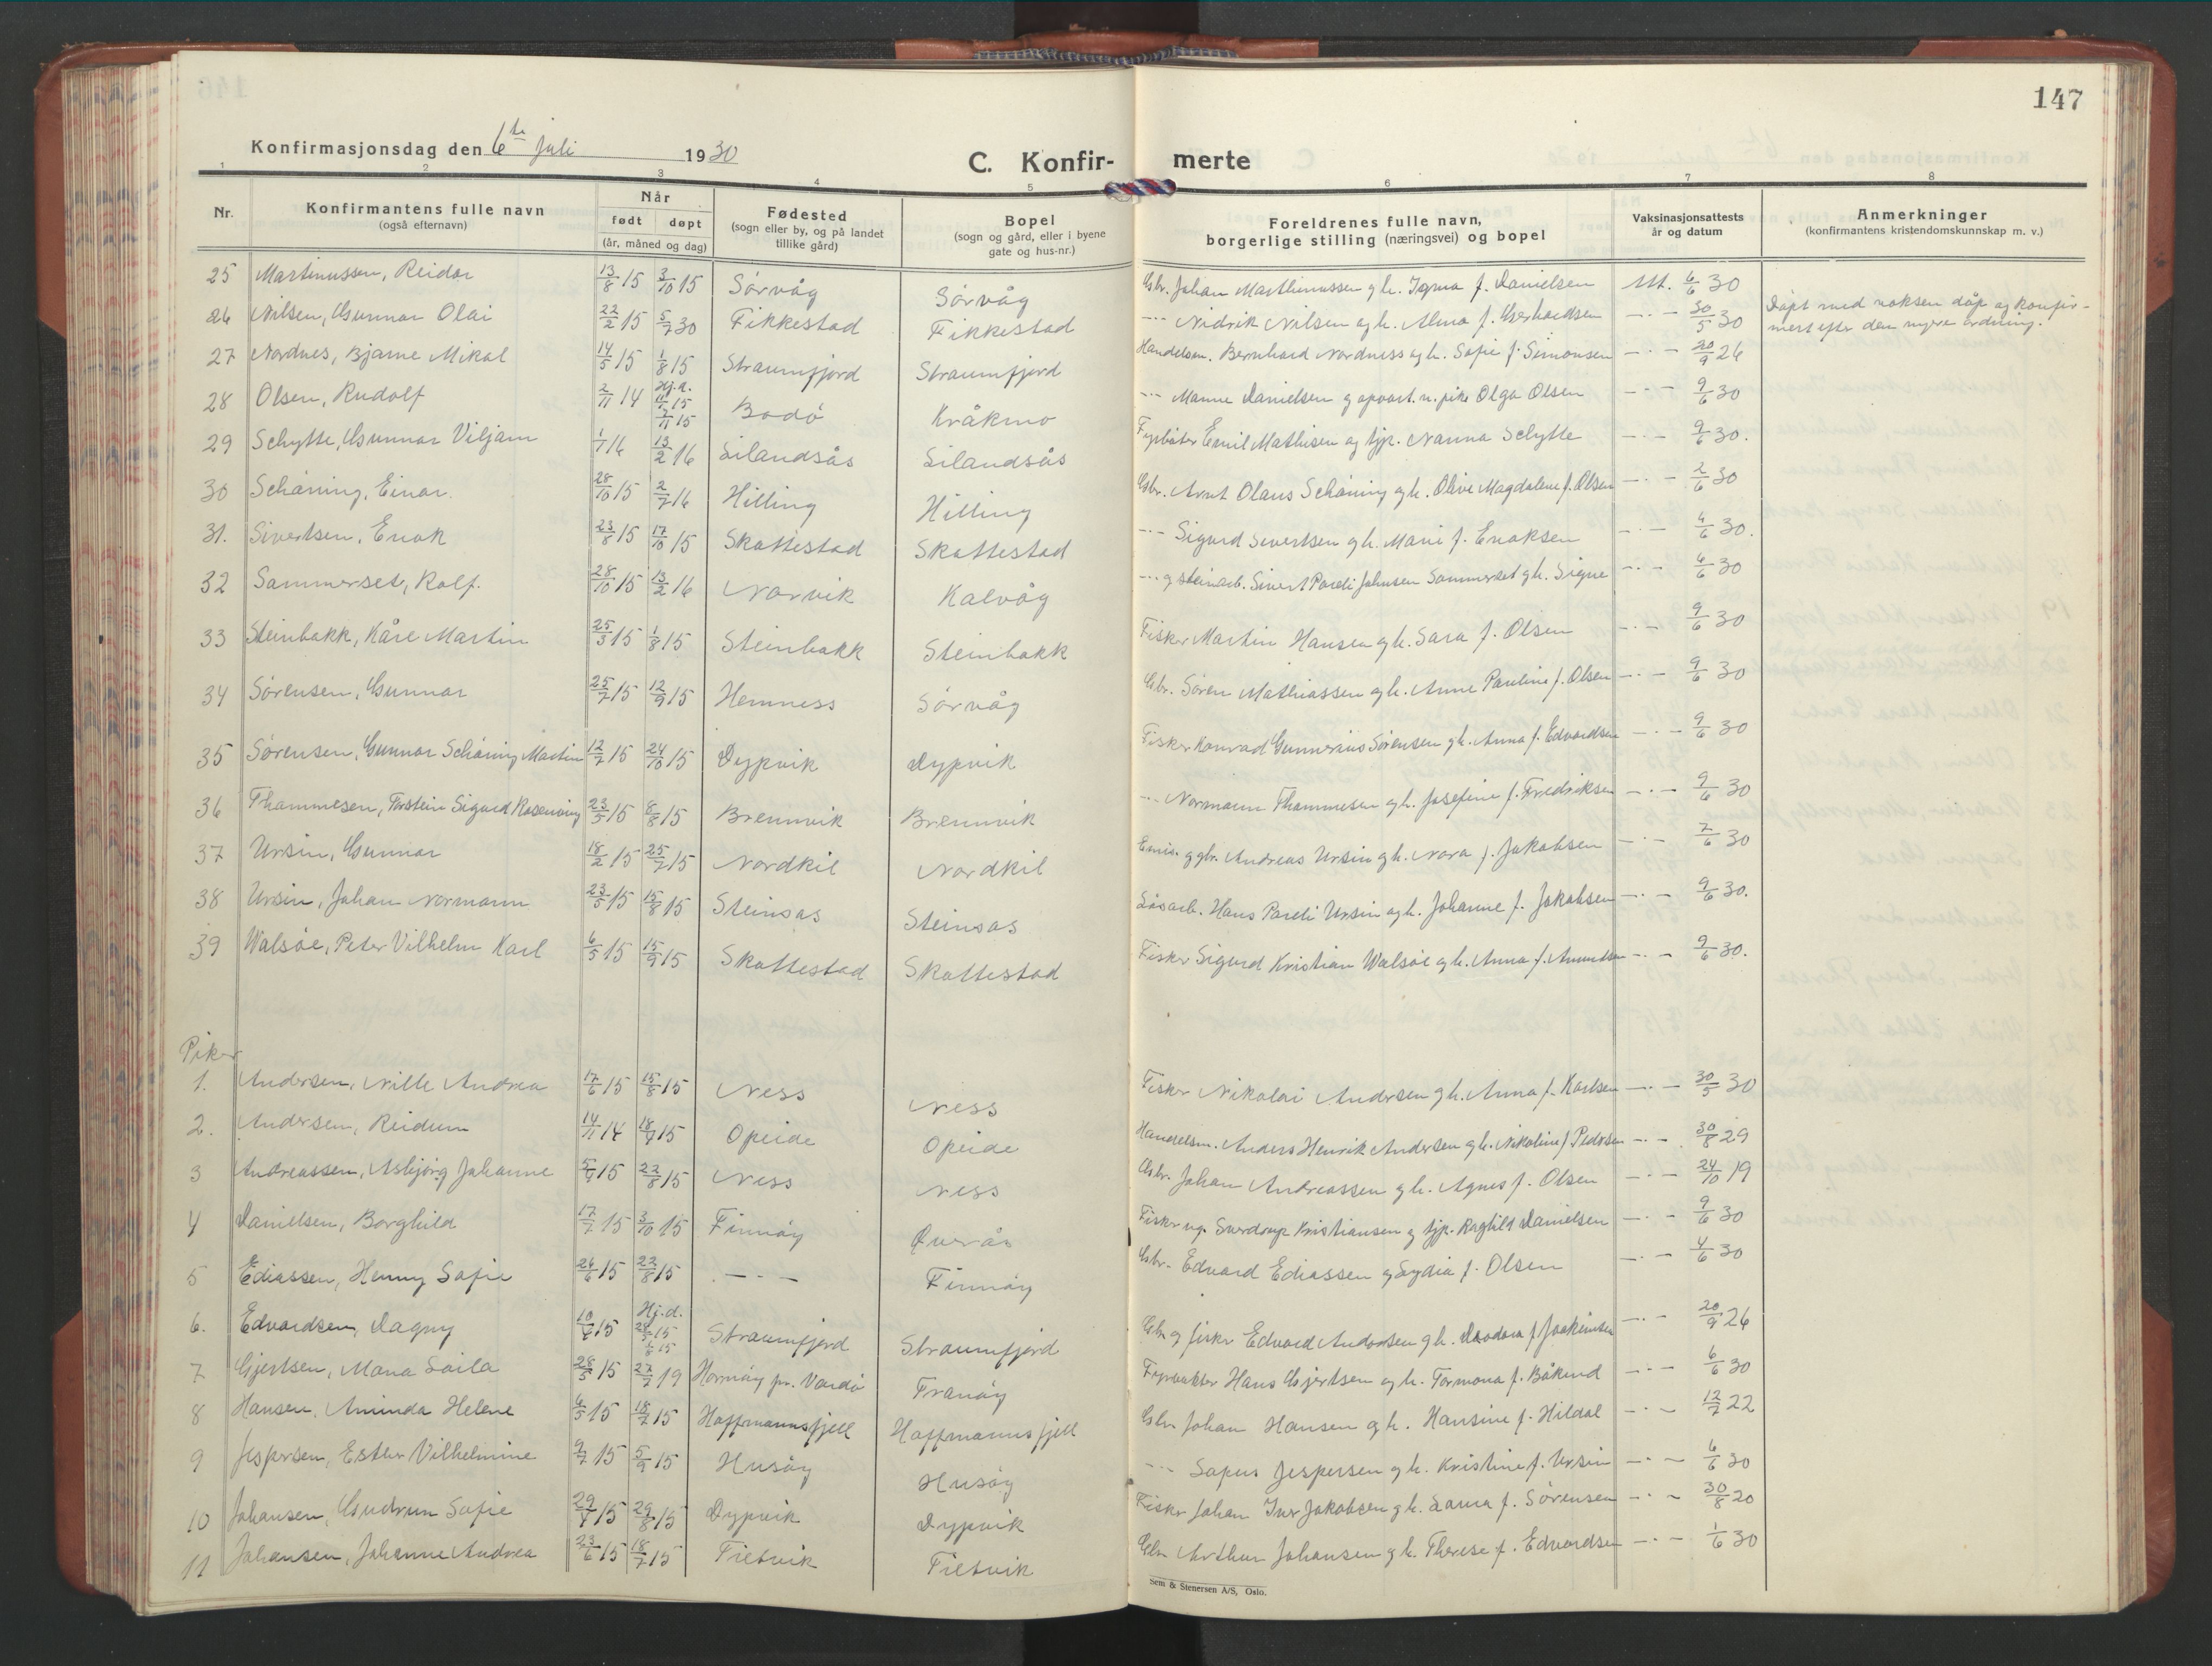 147
Konfirmasjonsdag den 6te Juli 1930
C. Konfir- merte
1 2 3 4 5 6 7 8
Nr.
Konfirmantens fulle navn
(også efternavn)
Når
født døpt
(år, måned og dag)
Fødested
(sogn eller by, og på landet
tillike gård)
Bopel
(sogn og gård, eller i byene
gate og hus-nr.)
Foreldrenes fulle navn,
borgerlige stilling (næringsvei) og bopel
Vaksinasjonsattests
år og datum
Anmerkninger
(konfirmantens kristendomskunnskap m. v.)
25 Martinussen, Reidar 13/8 15 3/10 15 Sørvåg Sørvåg Gbr. Johan Marthinussen og h. f. Danielsen Att. 6/6 30
26 Nilsen, Gunnar Olai 22/2 15 5/7 30 Fikkestad Fikkestad -"- Nidrik Nilsen og h. Alma f. Gerhardsen -"- 30/5 30 Døpt med voksen dåp og konfir-
mert efter den nyere ordning.
27 Nordnes, Bjarne Mikal 14/5 15 1/8 15 Straumfjord Straumfjord Handelsm. Bernhard Nordness og h. Sofie f. Simonsen -"- 20/9 26
28 Olsen, Rudolf 2/11 14 Hj.d. 15 7/11 15 Bodø Kråkmo -"- Manne Danielsen og opvart. n. pike Olga Olsen -"- 9/6 30
29 Schytte, Gunnar Viljam 1/1 16 13/2 16 Silandsås Silandsås Fyrbøter Emil Mathisen og tjp. Nanna Schytte -"- 9/6 30.
30 Schøning, Einar. 28/10 15 2/7 16 Hilling Hilling Gbr. Arnt Olaus Schøning og h. Olive Magdalene f. Olsen -"- 2/6 30
31. Sivertsen, Enok 23/8 15 17/10 15 Skottestad Skottestad -"- Sigurd Sivertsen og h. Marie f. Enoksen -"- 4/6 30.
32 Sammerset, Rolf. 28/10 15 13/2 16 Narvik Kalvåg -"- og steinarb. Sivert Pareli Johnsen Sommerset og h. Signe -"- 6/6 30
33 Steinbakk, Kåre Martin 25/3 15 1/8 15 Steinbakk Steinbakk Fisker Martin Hansen og h. Sara f. Olsen -"- 9/6 30
34 Sørensen, Gunnar 25/7 15 12/9 15 Hemness Sørvåg Gbr. Søren Mathiassen og h. Anne Pauline f. Olsen -"- 9/6 30
35 Sørensen, Gunnar Schøning Martin 12/7 15 24/10 15 Dypvik Dypvik Fisker Konrad Gunnerius Sørensen og h. Anna f. Edvardsen -"- 9/6 30
36 Thommesen, Torstein Sigurd Rosenving 23/5 15 8/8 15 Brennvik Brennvik -"- Normann Thommesen og h. Josefine f. Fredriksen -"- 9/6 30
37 Ursin, Gunnar 18/2 15 25/7 15 Nordkil Nordkil Emis. og gbr. Andreas Ursin og h. Nora f. Jakobsen -"- 7/6 30
38 Ursin, Johan Normann 23/5 15 15/8 15 Steinsås Steinsås Løsarb. Hans Pareli Ursin og h. Johanne f. Jakobsen -"- 9/6 30.
39 Walsøe, Peter Vilhelm Karl 6/5 15 15/9 15 Skottestad Skottestad Fisker Sigurd Kristian Walsøe og h. Anna f. Amundsen -"- 9/6 30.
Piker
1. Andersen, Nille Andrea 17/6 15 15/8 15 Ness Ness Fisker Nikolai Andersen og h. Anna f. Karlsen -"- 30/5 30
2. Andersen, Reidun 14/11 14 18/7 15 Opeide Opeide Handelsm. Anders Henrik Andersen og h. Nikoline f. Pedersen -"- 30/8 29
3 Andreassen, Asbjørg Johanne 15 22/8 15 Ness Ness Gbr. Johan Andreassen og h. Agnes f. Olsen -"- 24/10 19
4 Danielsen, Borghild 17/7 15 3/10 15 Finnøy Fisker ug. Sverdrup Kristiansen og tjp. Raghild Danielsen -"- 9/6 30
5 Ediassen, Henny Sofie 26/6 15 22/8 15 -"- Finnøy Gbr. Edvard Ediassen og Lydia f. Olsen -"- 4/6 30
6. Edvardsen, Dagny 10/4 15 Hj.d. 15 15 Straumfjord Straumfjord Gbr og fisker Edvard Andersen og h. f. Joakimsen -"- 20/9 26
7 Gjertsen, Mona Laila 28/5 15 27/7 19 Hornøy pr. Vardø Tranøy Fyrvokter Hans Gjertsen og h. Tormona f. -"- 6/6 30
8 Hansen, Aminda Helene 6/5 15 18/7 15 Hoffmannsfjell Hoffmannsfjell Gbr Johan Hansen og h. Hansine f. Hildal -"- 12/7 22
9 Jespersen, Esther Vilhelmine 9/7 15 5/9 15 Husøy Husøy -"- Jespersen og h. Kristine f. Ursin -"- 6/6 30
10 Johansen, Gudrun Sofie 29/4 15 29/8 15 Dypvik Dypvik Fisker Johan Iver Jakobsen og h. Laura f. Sørensen -"- 30/8 20
11 Johansen, Johanne Andrea 23/6 15 18/7 15 Tietvik Tietvik Gbr Arthur Johansen og h. Therese f. Edvardsen -"- 1/6 30
Sem & Stenersen A/S, Oslo.